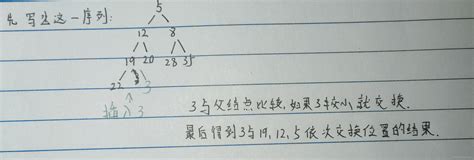 先写出这一序列:
5
12 8
19 20 28 35
22 3
插入3
3与父结点比较,如果3较小就交换.
最后得到3与19,12,5依次交换位置的结果.